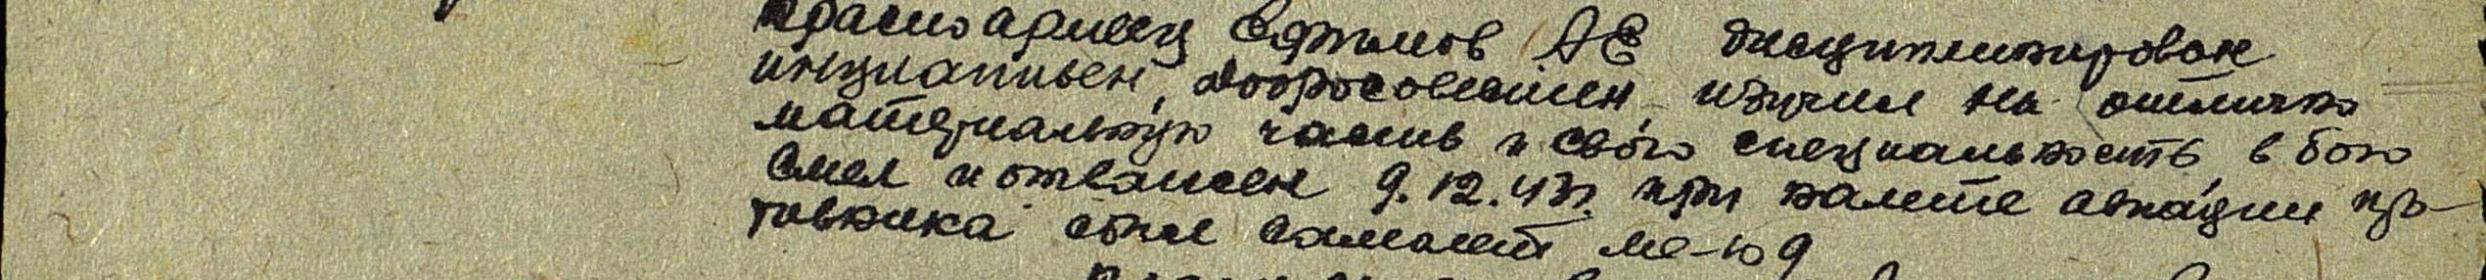 Красноармеец Ефимов АЕ дисциплинирован
инициативен, добросовестен, изучил на отлично
материальную часть и свою специальность, в бою
смел и отважен 9.12.43г. при налете авиации про-
тивника сбил самолет ме-109